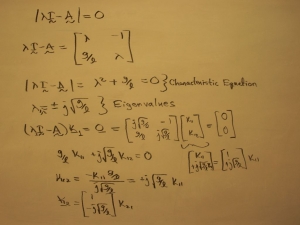 |λI-A|=0
λI-A = [λ -1
g/l λ]
|λI-A| = λ² + g/l = 0 } Characteristic Equation
λ = ± j√g/l } Eigenvalues
(λI-A)K₁ = 0 = [j√g/l -1
g/l j√g/l] [K₁₁
K₁₂] = [0
0]
g/l K₁₁ + j√g/l K₁₂ = 0
K₁₂ = -K₁₁ g/l / j√g/l = +j√g/l K₁₁
[K₁₁
+j√g/l K₁₁] = [1
+j√g/l] K₁₁
= [1
-j√g/l] K₂₁